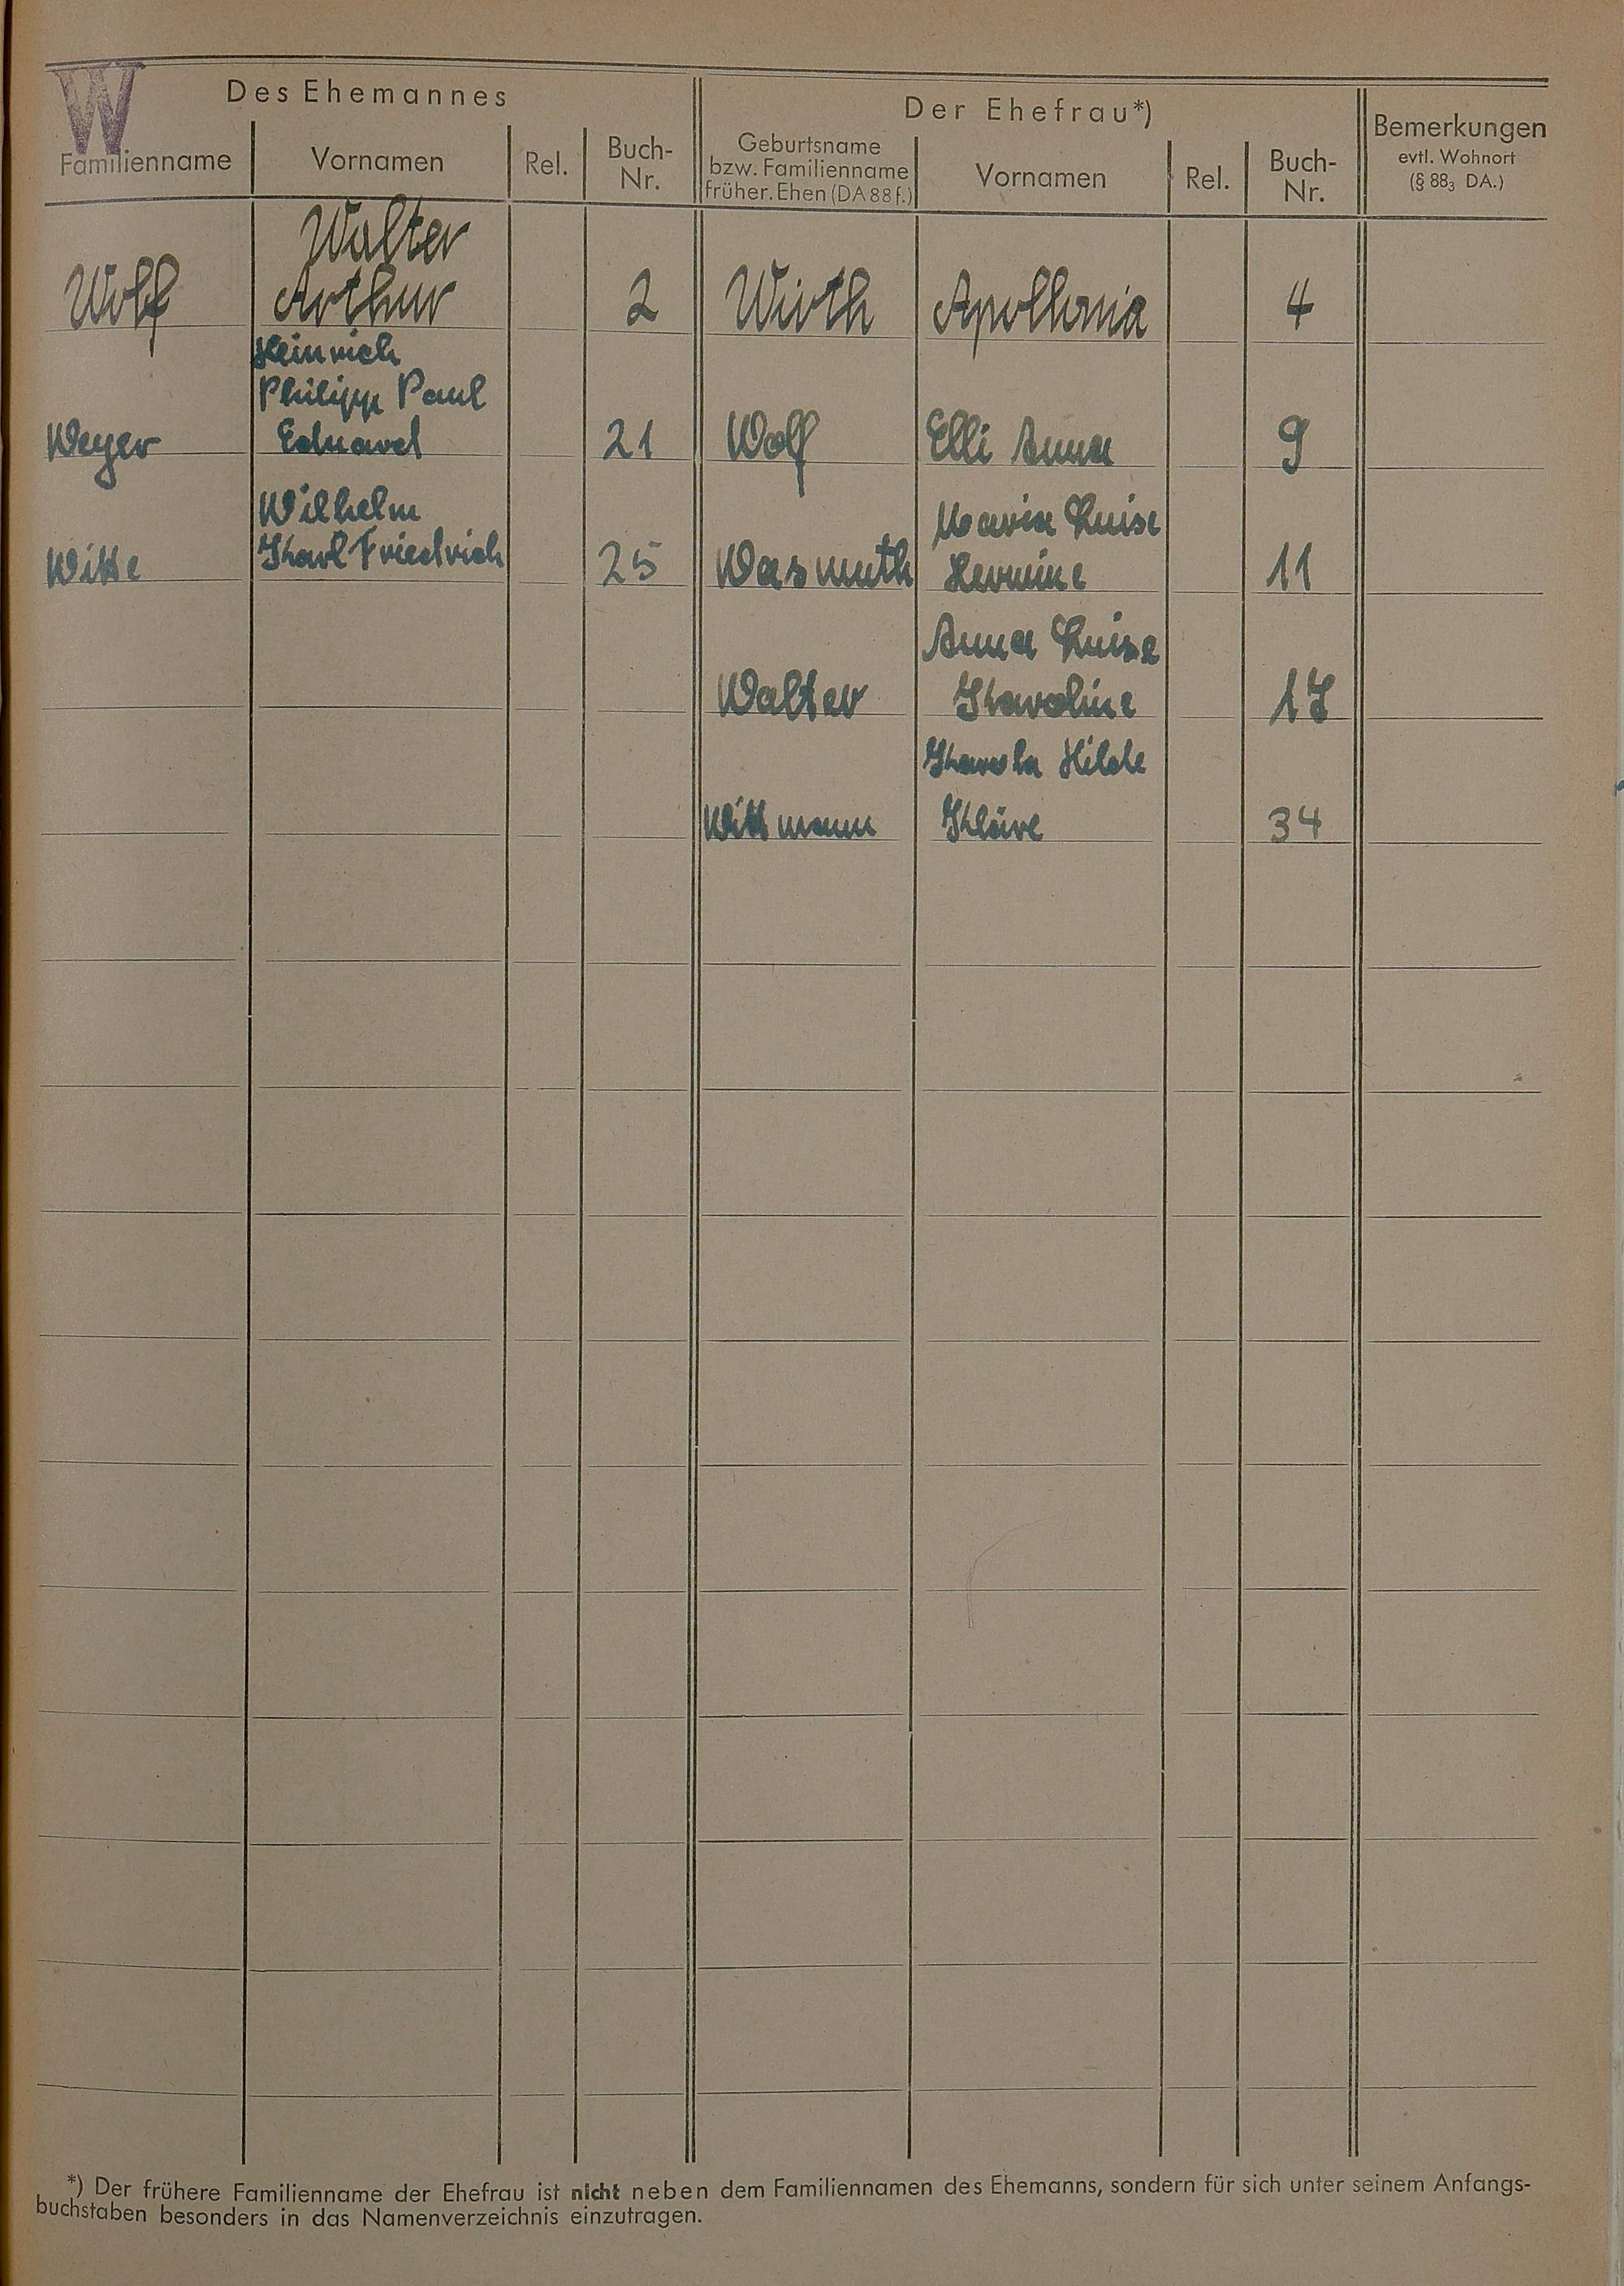 W
Des Ehemannes
Der Ehefrau*)
Familienname
Vornamen
Rel.
Buch-
Nr.
Geburtsname
bzw. Familienname
früher. Ehen (DA 88 f.)
Vornamen
Rel.
Buch-
Nr.
Bemerkungen
evtl. Wohnort
(§ 88₃ DA.)
Walter
Wolf Arthur 2 Wirth Apollonia 4
Heinrich
Philipp Paul
Weyer Eduard 21 Wolf Elli Anna 9
Wilhelm Maria Luise
Witte Karl Friedrich 25 Wasmuth Hermine 11
Anna Luise
Walter Karoline 17
Karola Hilde
Wittmann Kläre 34
*) Der frühere Familienname der Ehefrau ist nicht neben dem Familiennamen des Ehemanns, sondern für sich unter seinem Anfangs-
buchstaben besonders in das Namenverzeichnis einzutragen.